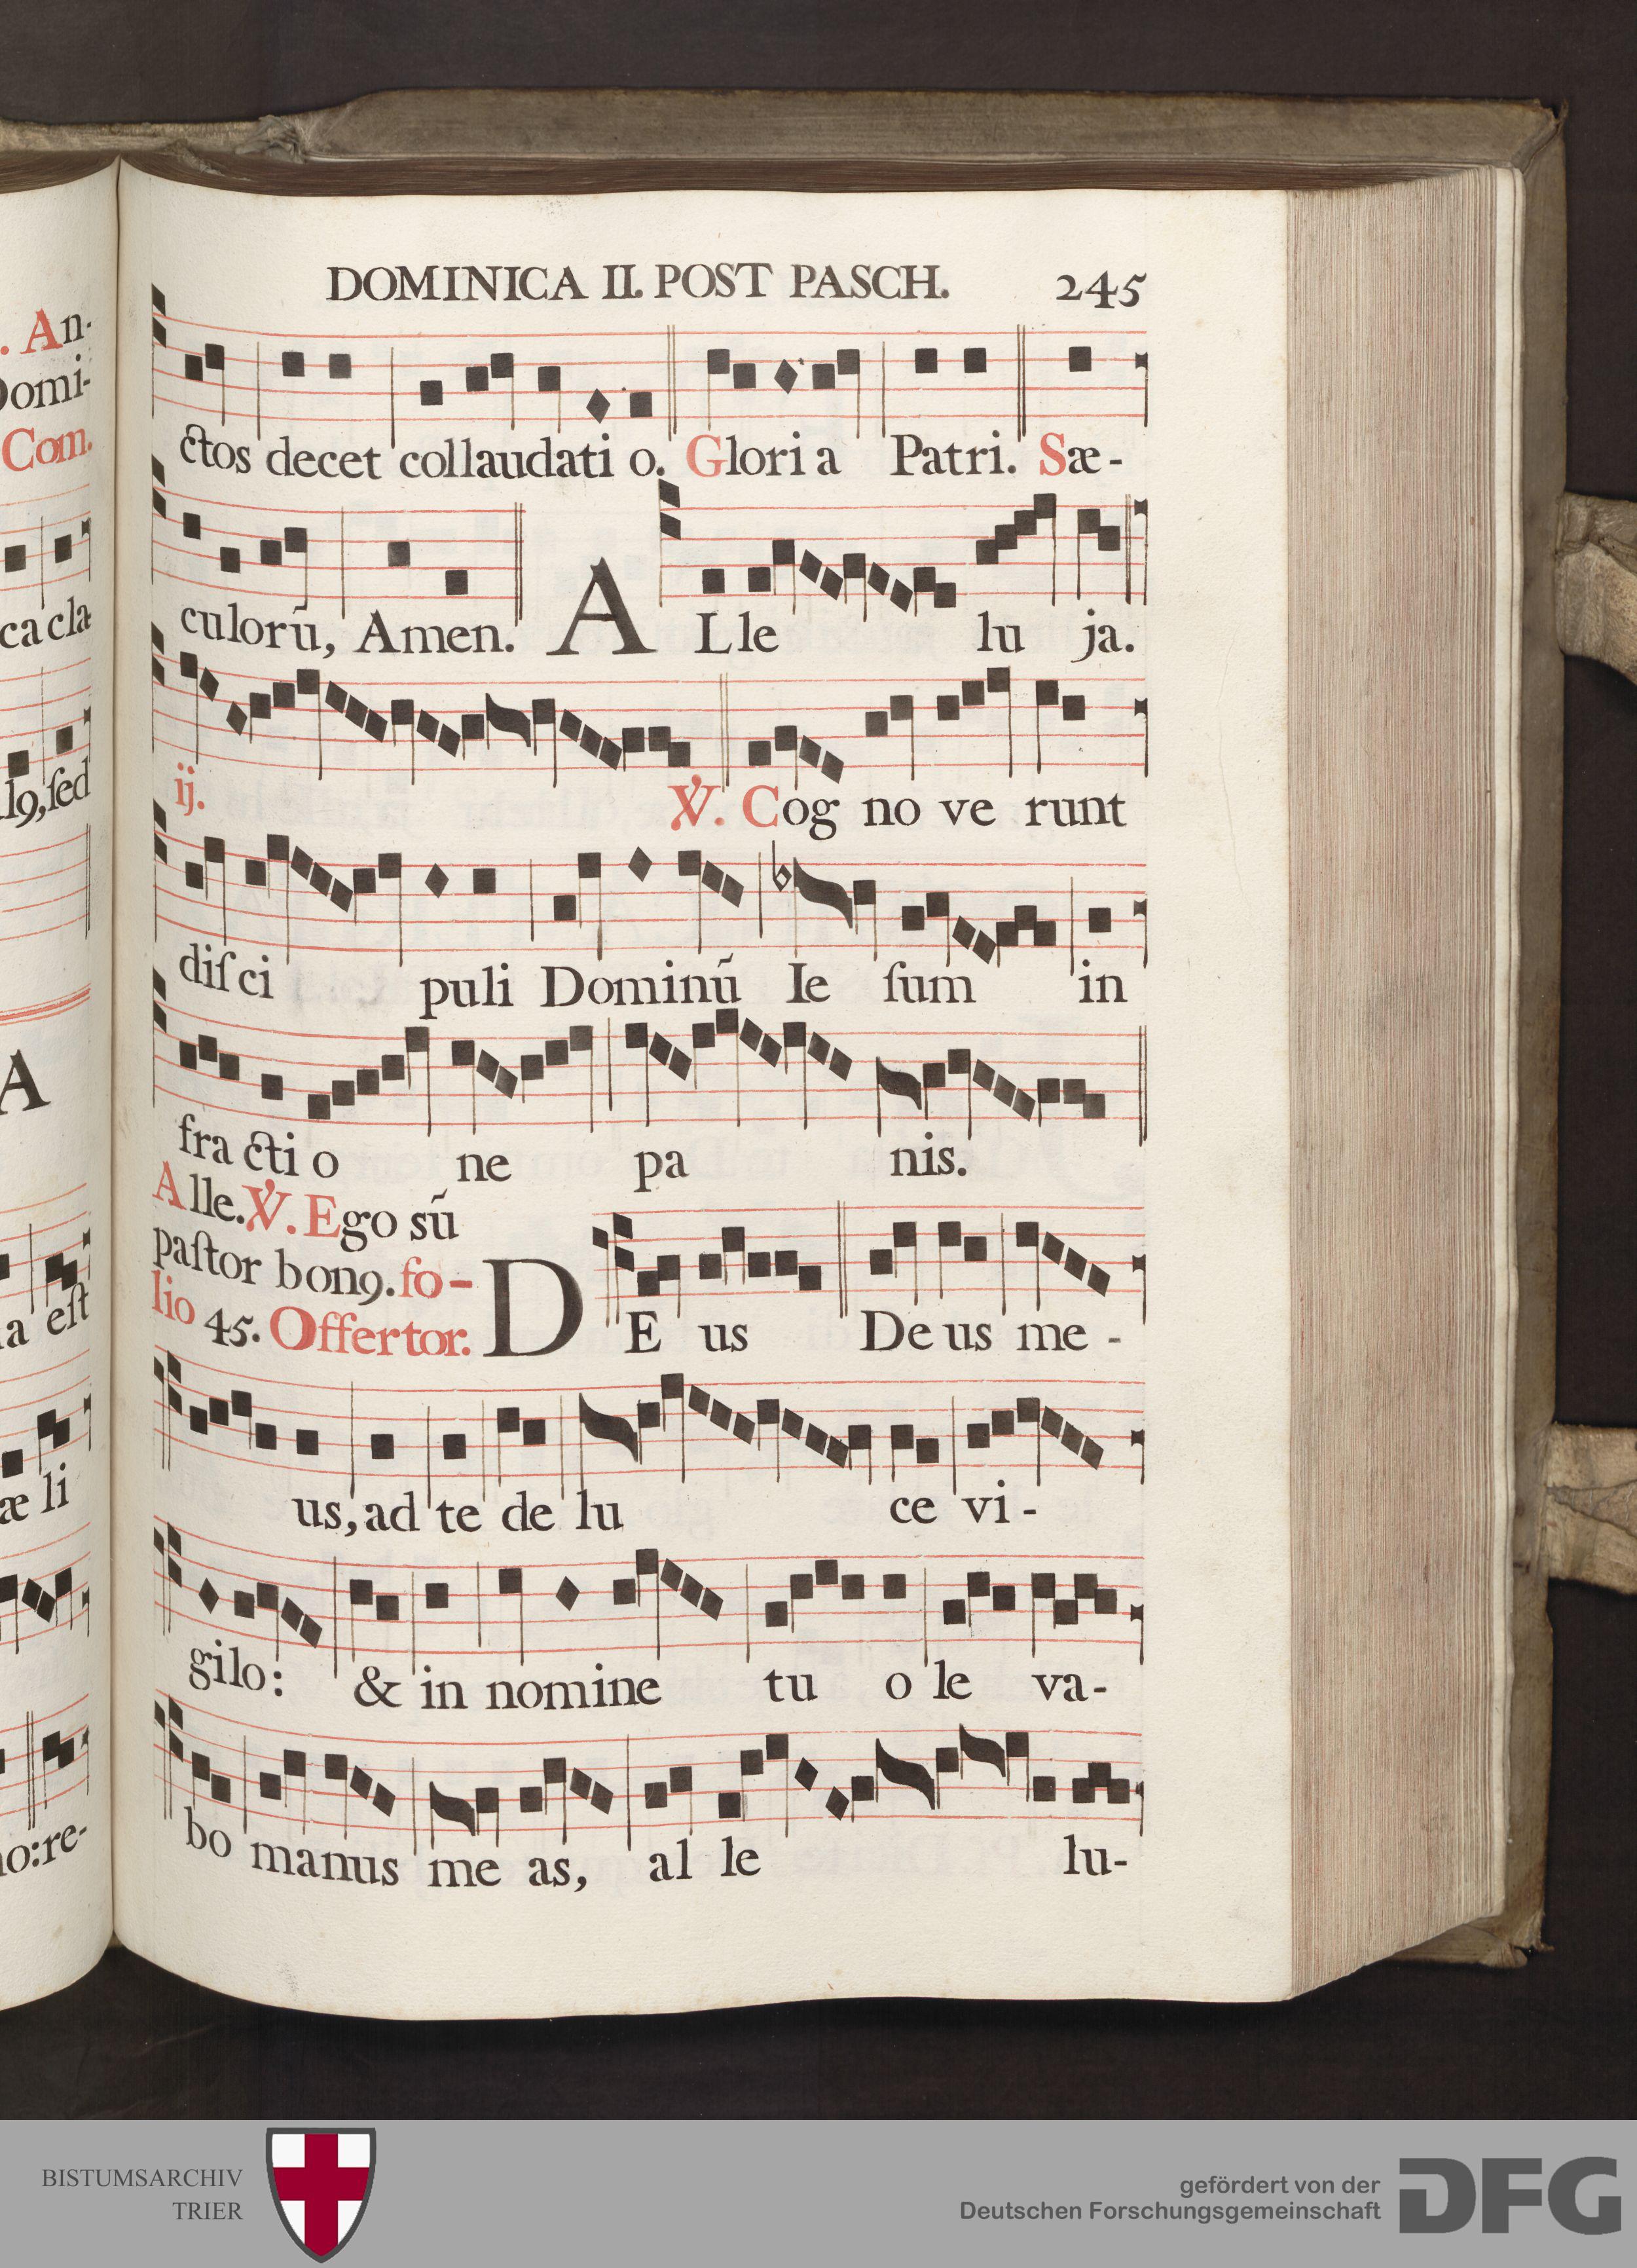 . An-
Domi-
Com.
ca cla
l9, ſed
A
a eſt
æ li
no: re-
DOMINICA II. POST PASCH. 245
ctos decet collaudati o. Glori a Patri. Sæ-
culorũ, Amen. A L le lu ja.
ij. ℣. Cog no ve runt
diſ ci puli Dominũ Ie ſum in
fra cti o ne pa nis.
Alle. ℣. Ego sũ
paſtor bon9. fo-
lio 45. Offertor. D E us De us me -
us, ad te de lu ce vi -
gilo: & in nomine tu o le va-
bo manus me as, al le lu-
BISTUMSARCHIV
TRIER
gefördert von der
Deutschen Forschungsgemeinschaft
DFG